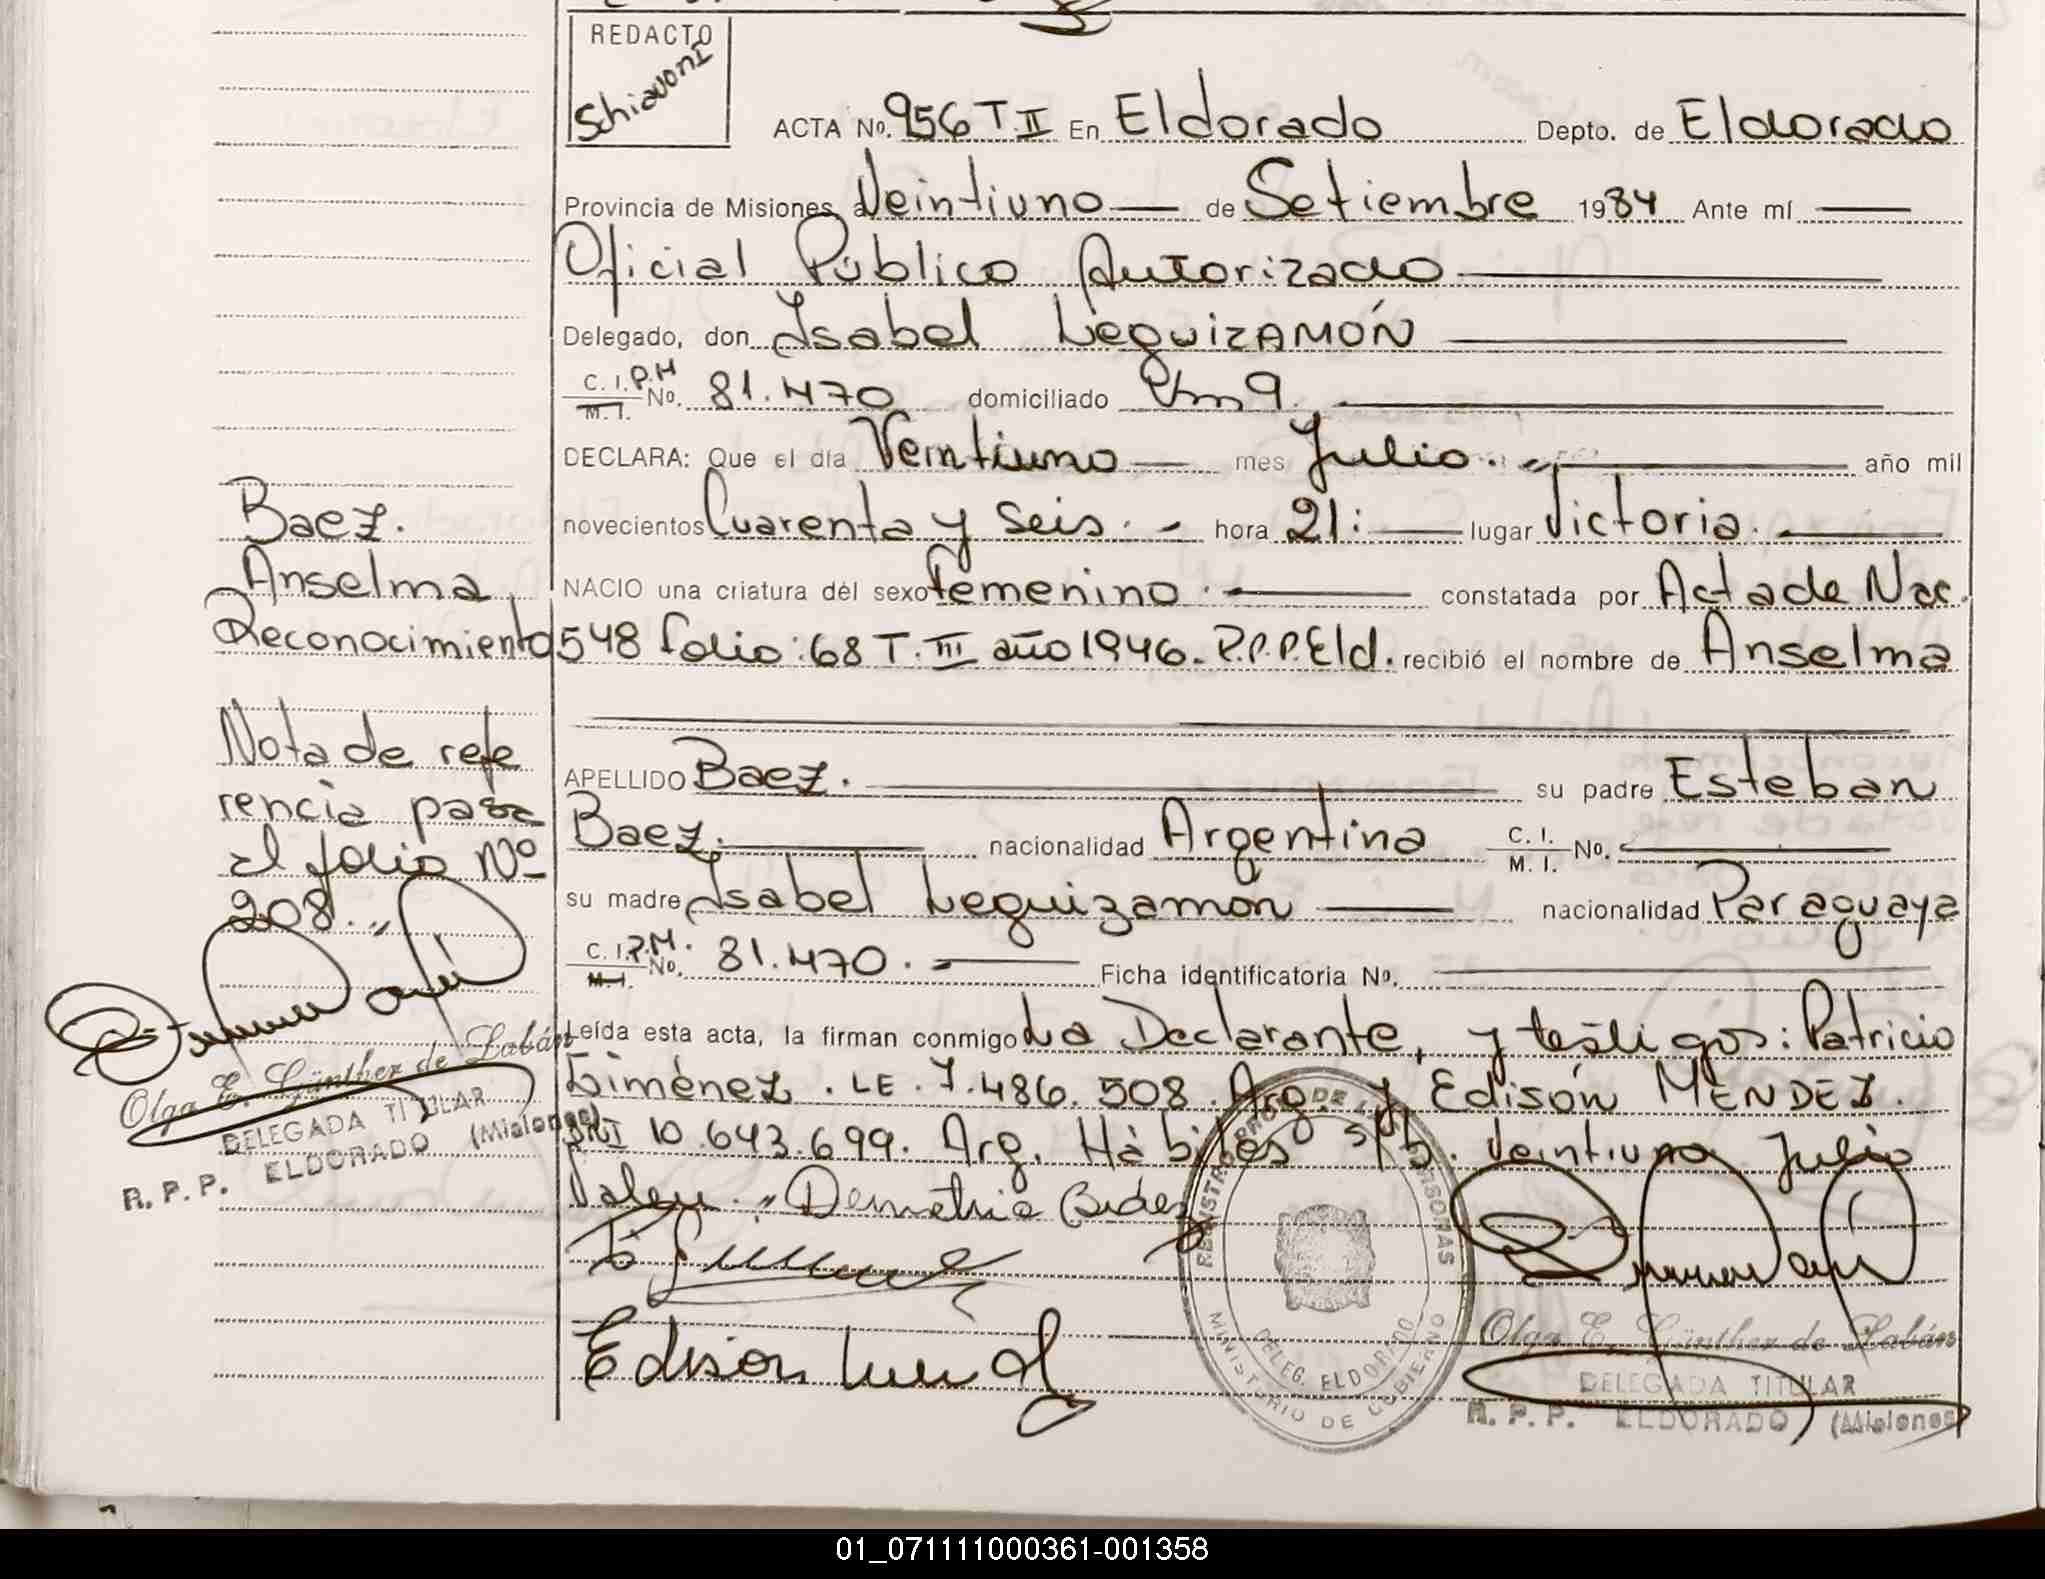 REDACTO
Schiavoni
ACTA No. 956 T. II En Eldorado Depto. de Eldorado
Provincia de Misiones, a Veintiuno de Setiembre 1984 Ante mí
Oficial Público Autorizado
Delegado, don Isabel Leguizamón
C. I. P.M
M. I. No. 81.470 domiciliado Km 9.
DECLARA: Que el día Veintiuno mes Julio. año mil
novecientos Cuarenta y Seis. hora 21: lugar Victoria.
NACIO una criatura del sexo femenino. constatada por Acta de Nac.
548 folio: 68 T. III año 1946. R.P.P. Eld. recibió el nombre de Anselma
APELLIDO Baez. su padre Esteban
Baez. nacionalidad Argentina C. I. M. I. No.
su madre Isabel Leguizamón nacionalidad Paraguaya
C. I. P.M. M. I. No. 81.470. Ficha identificatoria No.
Leída esta acta, la firman conmigo La Declarante, y testigos: Patricio
Giménez. LE. 7.486.508. Arg. y Edisón MENDEZ.
DNI 10.643.699. Arg. Hábiles s/b. Veintiuno Julio
Valen.
Edison
Baez.
Anselma
Reconocimiento
Nota de refe
rencia pasa
al folio Nº
208.
Olga E. Günther de Labán
DELEGADA TITULAR
R. P. P. ELDORADO (Misiones)
REGISTRO PROV. DE LAS PERSONAS
DELEG. ELDORADO
MINISTERIO DE GOBIERNO
Olga E. Günther de Labán
DELEGADA TITULAR
R. P. P. ELDORADO (Misiones)
01_071111000361-001358